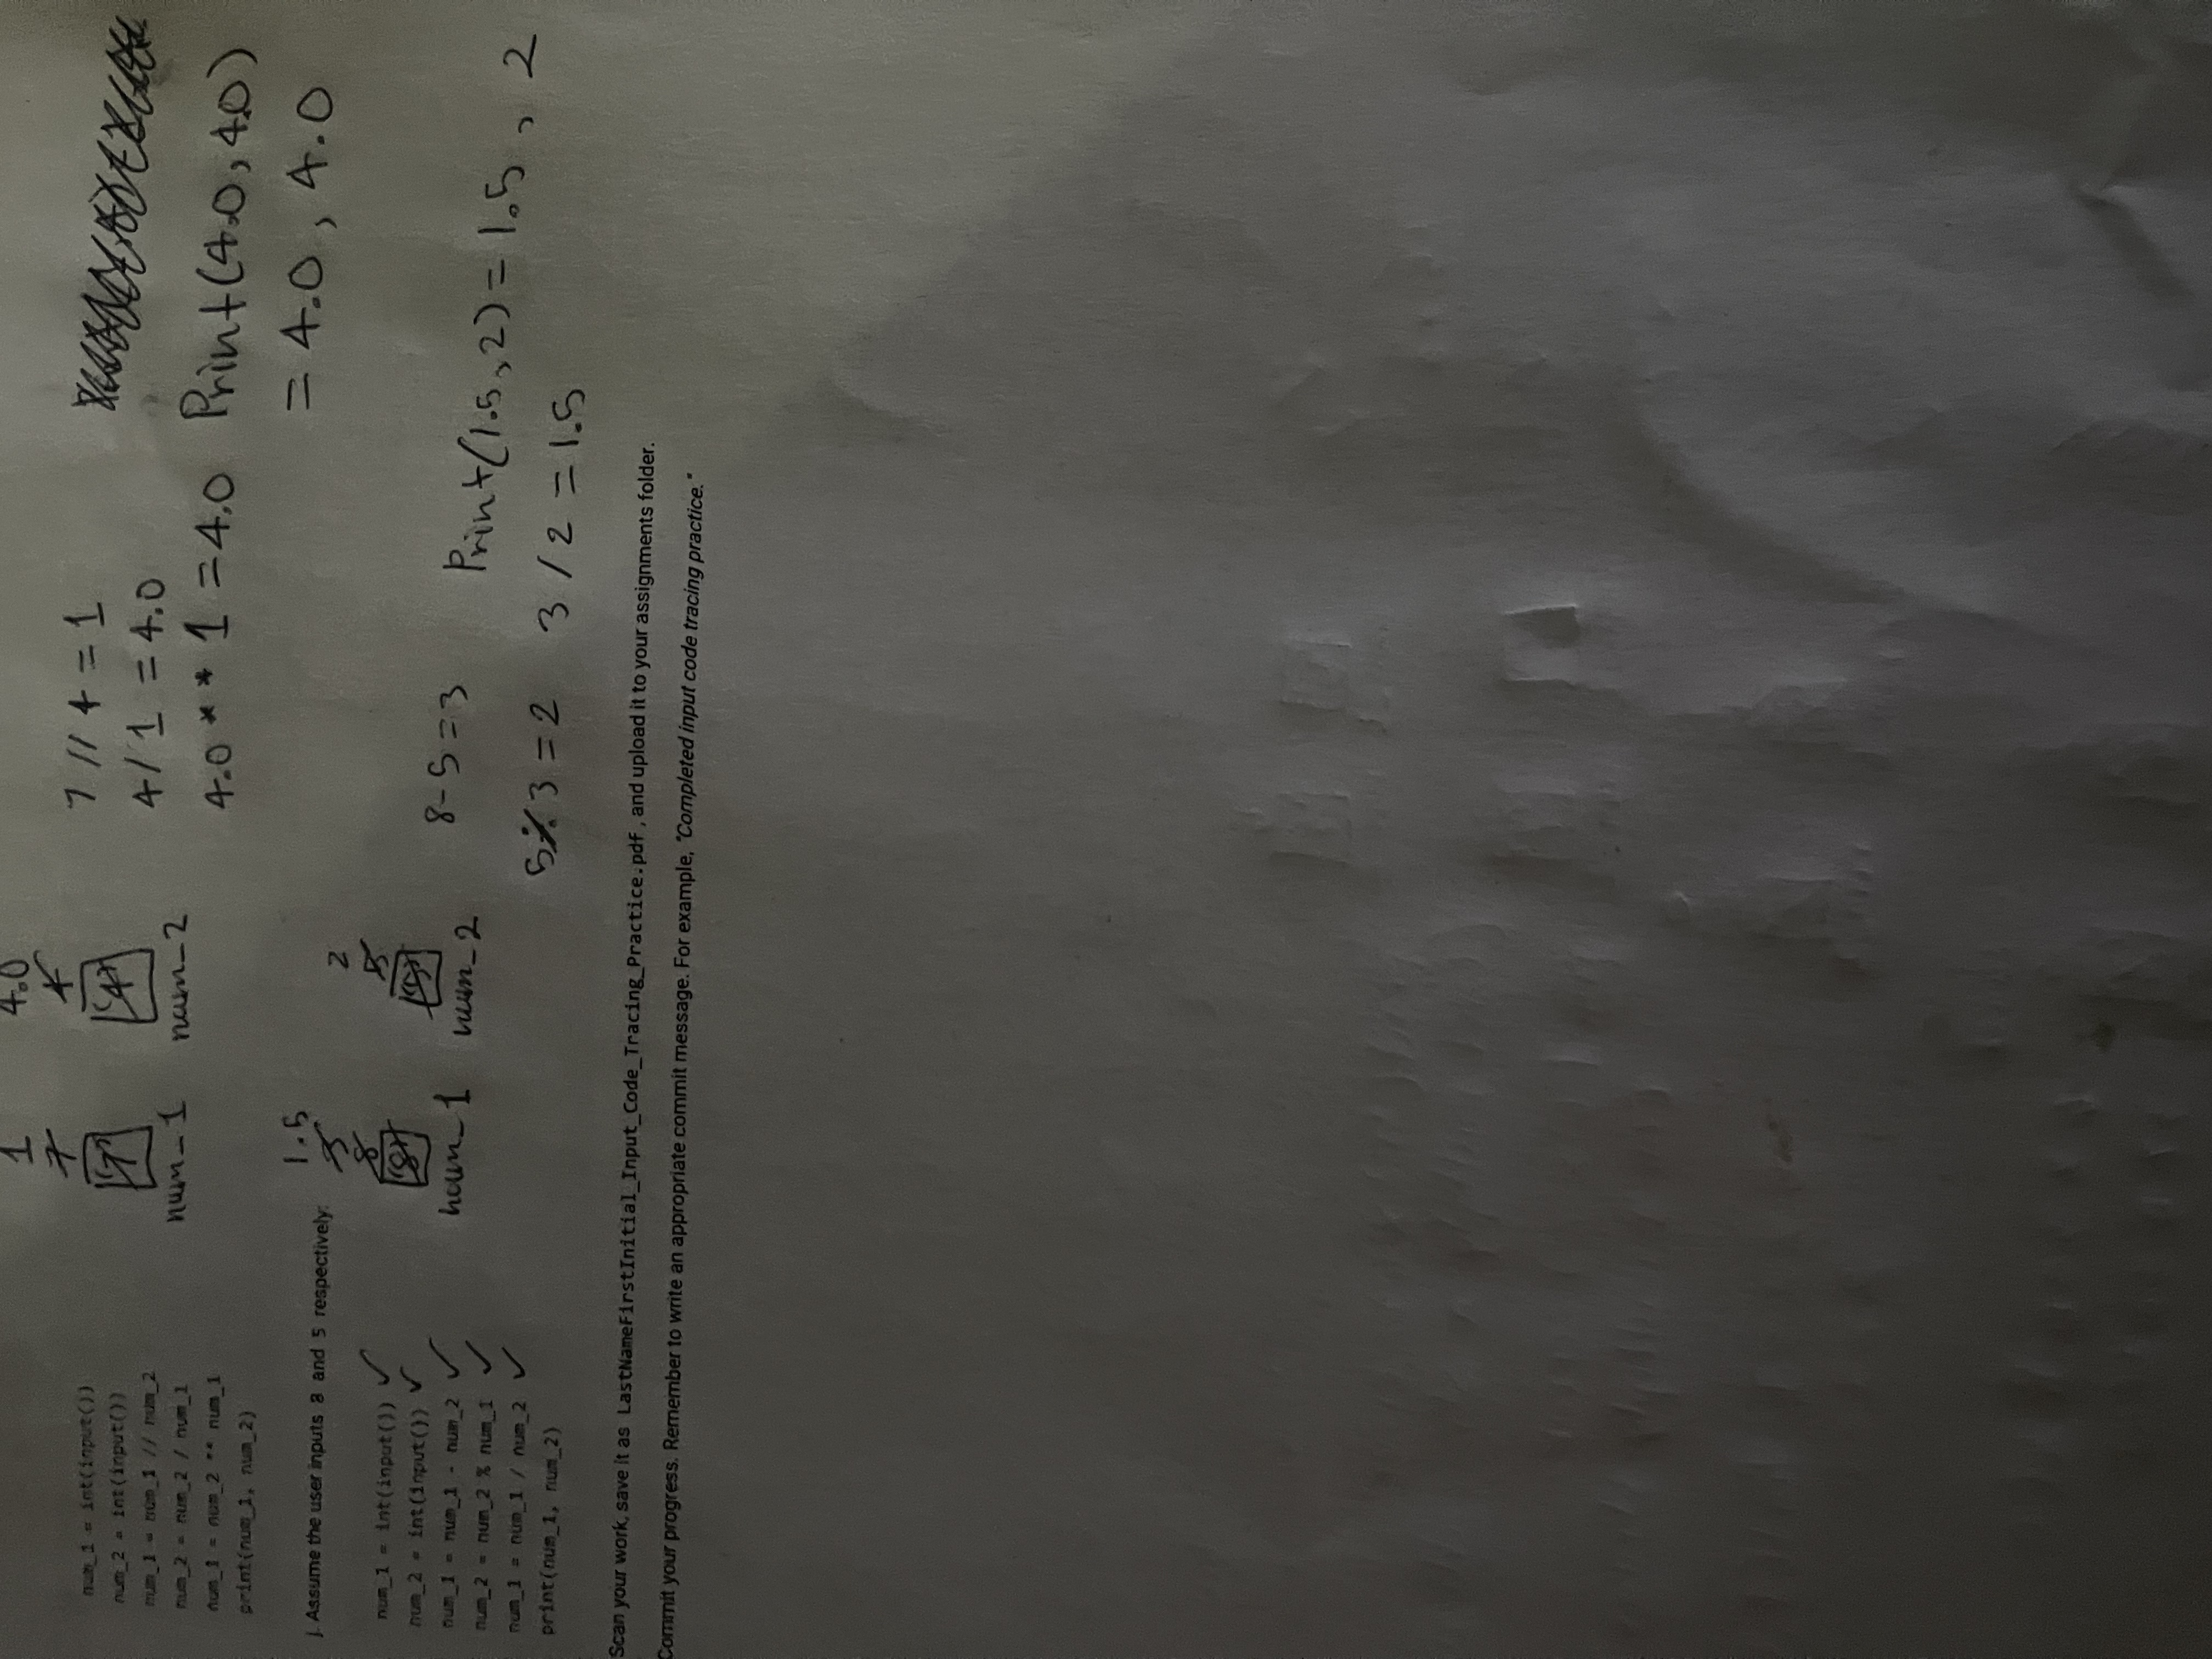 1 4.0
7 4
num_1 = int(input()) (7) (4) 7 // 4 = 1
num_2 = int(input())
num_1 = num_1 // num_2 num_1 num_2 4/1 = 4.0
num_2 = num_2 / num_1
num_1 = num_2 ** num_1 4.0 ** 1 = 4.0 Print(4.0, 4.0)
print(num_1, num_2)
= 4.0, 4.0
1.5
j. Assume the user inputs 8 and 5 respectively:
3 2
8 5
num_1 = int(input()) ✓ (8) (5)
num_2 = int(input()) ✓
num_1 = num_1 - num_2 ✓ num_1 num_2 8-5=3
num_2 = num_2 % num_1 ✓ Print(1.5,2) = 1.5, 2
num_1 = num_1 / num_2 ✓
print(num_1, num_2) 5%3=2 3/2 = 1.5
Scan your work, save it as LastNameFirstInitial_Input_Code_Tracing_Practice.pdf, and upload it to your assignments folder.
Commit your progress. Remember to write an appropriate commit message. For example, "Completed input code tracing practice."